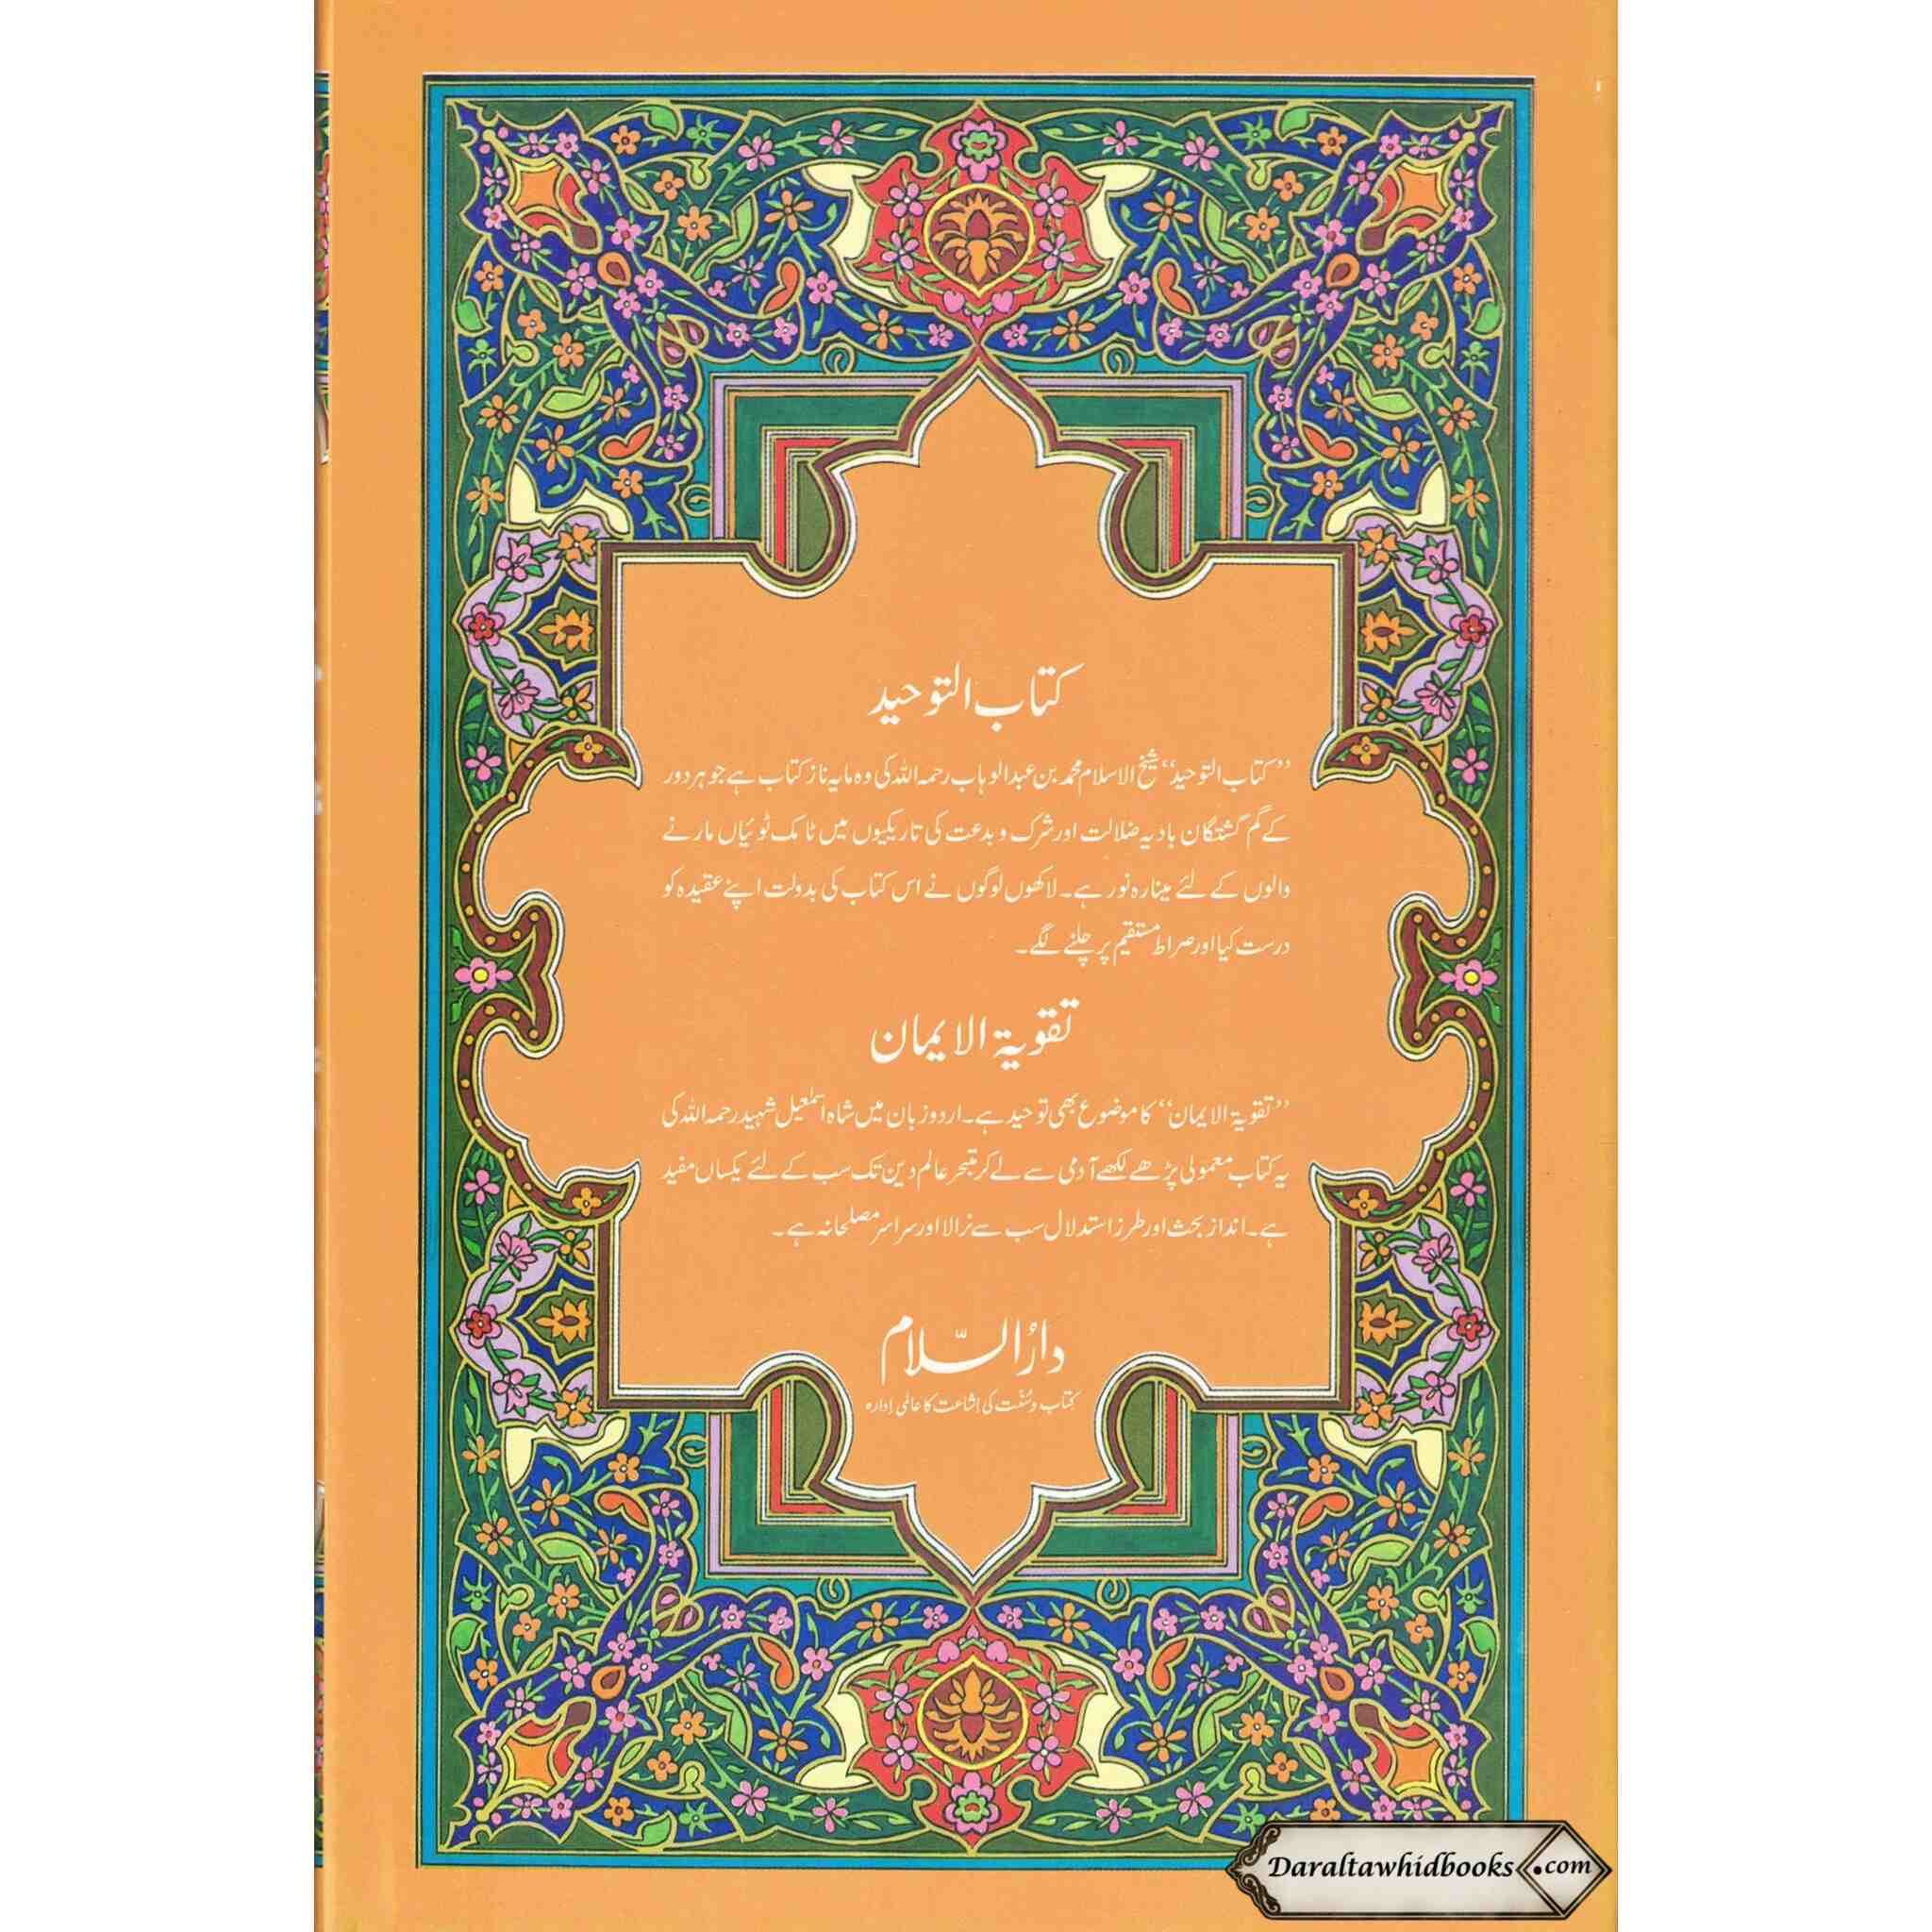 کتاب التوحید
”کتاب التوحید“ شیخ الاسلام محمد بن عبدالوہاب رحمہ اللہ کی وہ مایہ ناز کتاب ہے جو ہر دور
کے گم گشتگان بادیہ ضلالت اور شرک و بدعت کی تاریکیوں میں ٹامک ٹوئیاں مارنے
والوں کے لئے مینارہ نور ہے۔ لاکھوں لوگوں نے اس کتاب کی بدولت اپنے عقیدہ کو
درست کیا اور صراط مستقیم پر چلنے لگے۔
تقویۃ الایمان
”تقویۃ الایمان“ کا موضوع بھی توحید ہے۔ اردو زبان میں شاہ اسمٰعیل شہید رحمہ اللہ کی
یہ کتاب معمولی پڑھے لکھے آدمی سے لے کر متبحر عالم دین تک سب کے لئے یکساں مفید
ہے۔ انداز بحث اور طرز استدلال سب سے نرالا اور سراسر مصلحانہ ہے۔
دارُالسّلام
کتاب و سُنّت کی اِشاعت کا عالمی اِدارہ
Daraltawhidbooks.com